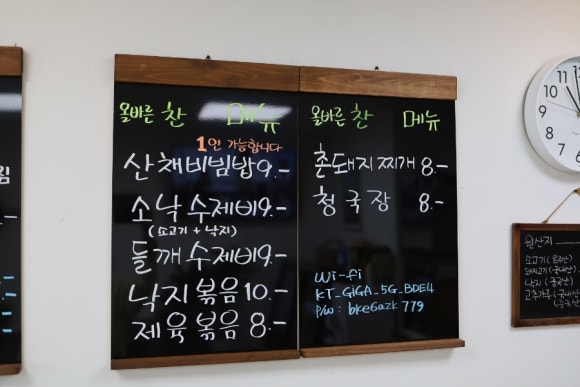 올바른 찬 메뉴
1인 가능합니다
산채비빔밥 9.-
소낙 수제비 9.-
(소고기 + 낙지)
들깨 수제비 9.-
낙지 볶음 10.-
제육 볶음 8.-
올바른 찬 메뉴
촌돼지찌개 8.-
청국장 8.-
Wi-fi
KT_GiGA_5G_BDE4
P/w : bke6azk779
10
11
12
9
8
7
원산지
소고기(호주산)
돼지고기(국내산)
낙지(중국산)
고추가루(국내산